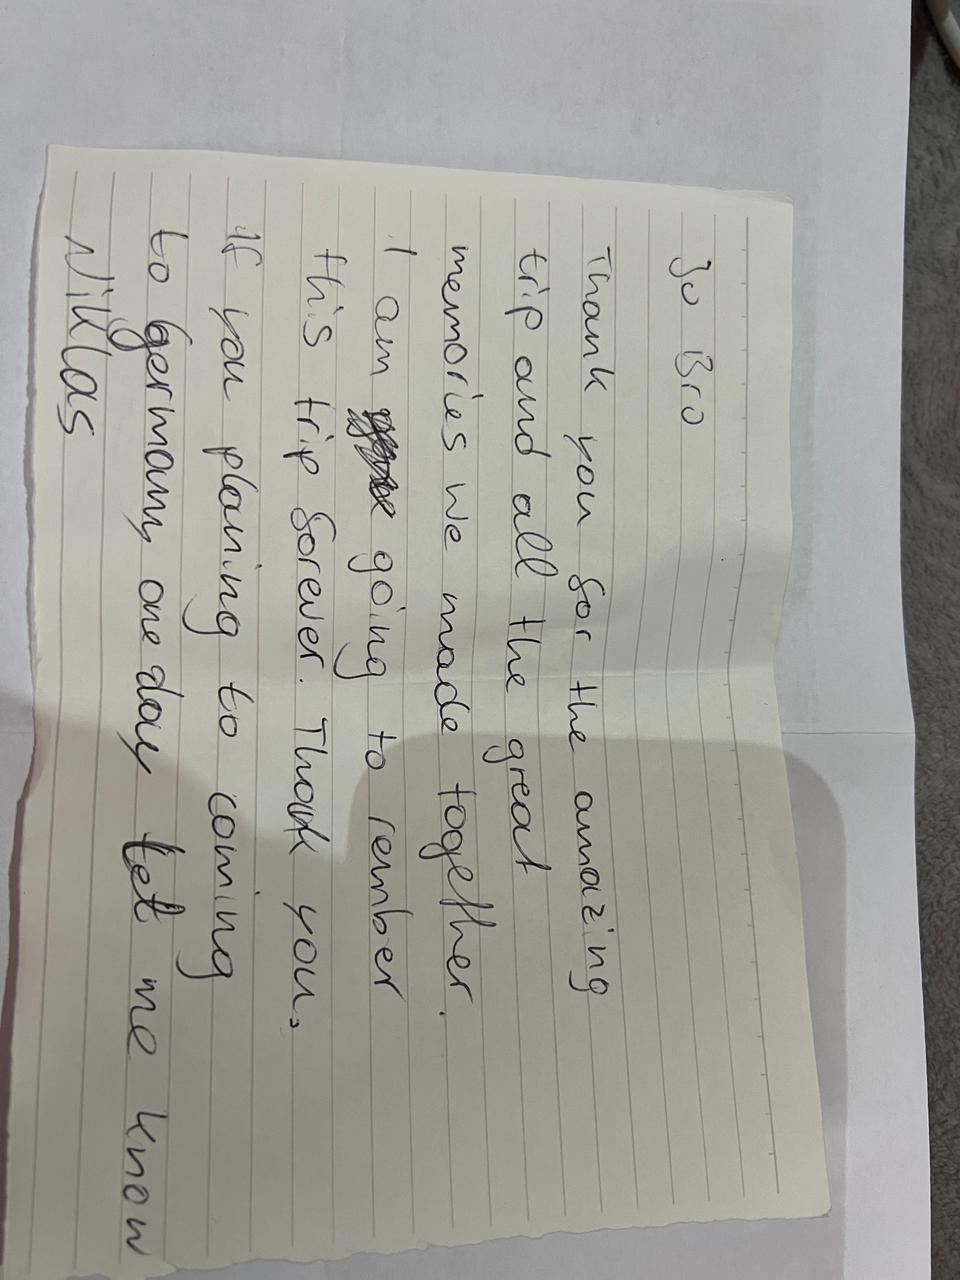 Jo Bro
Thank you for the amazing
trip and all the great
memories we made together.
I am going to rember
this trip forever. Thank you.
If you planing to coming
to germany one day let me know
Niklas